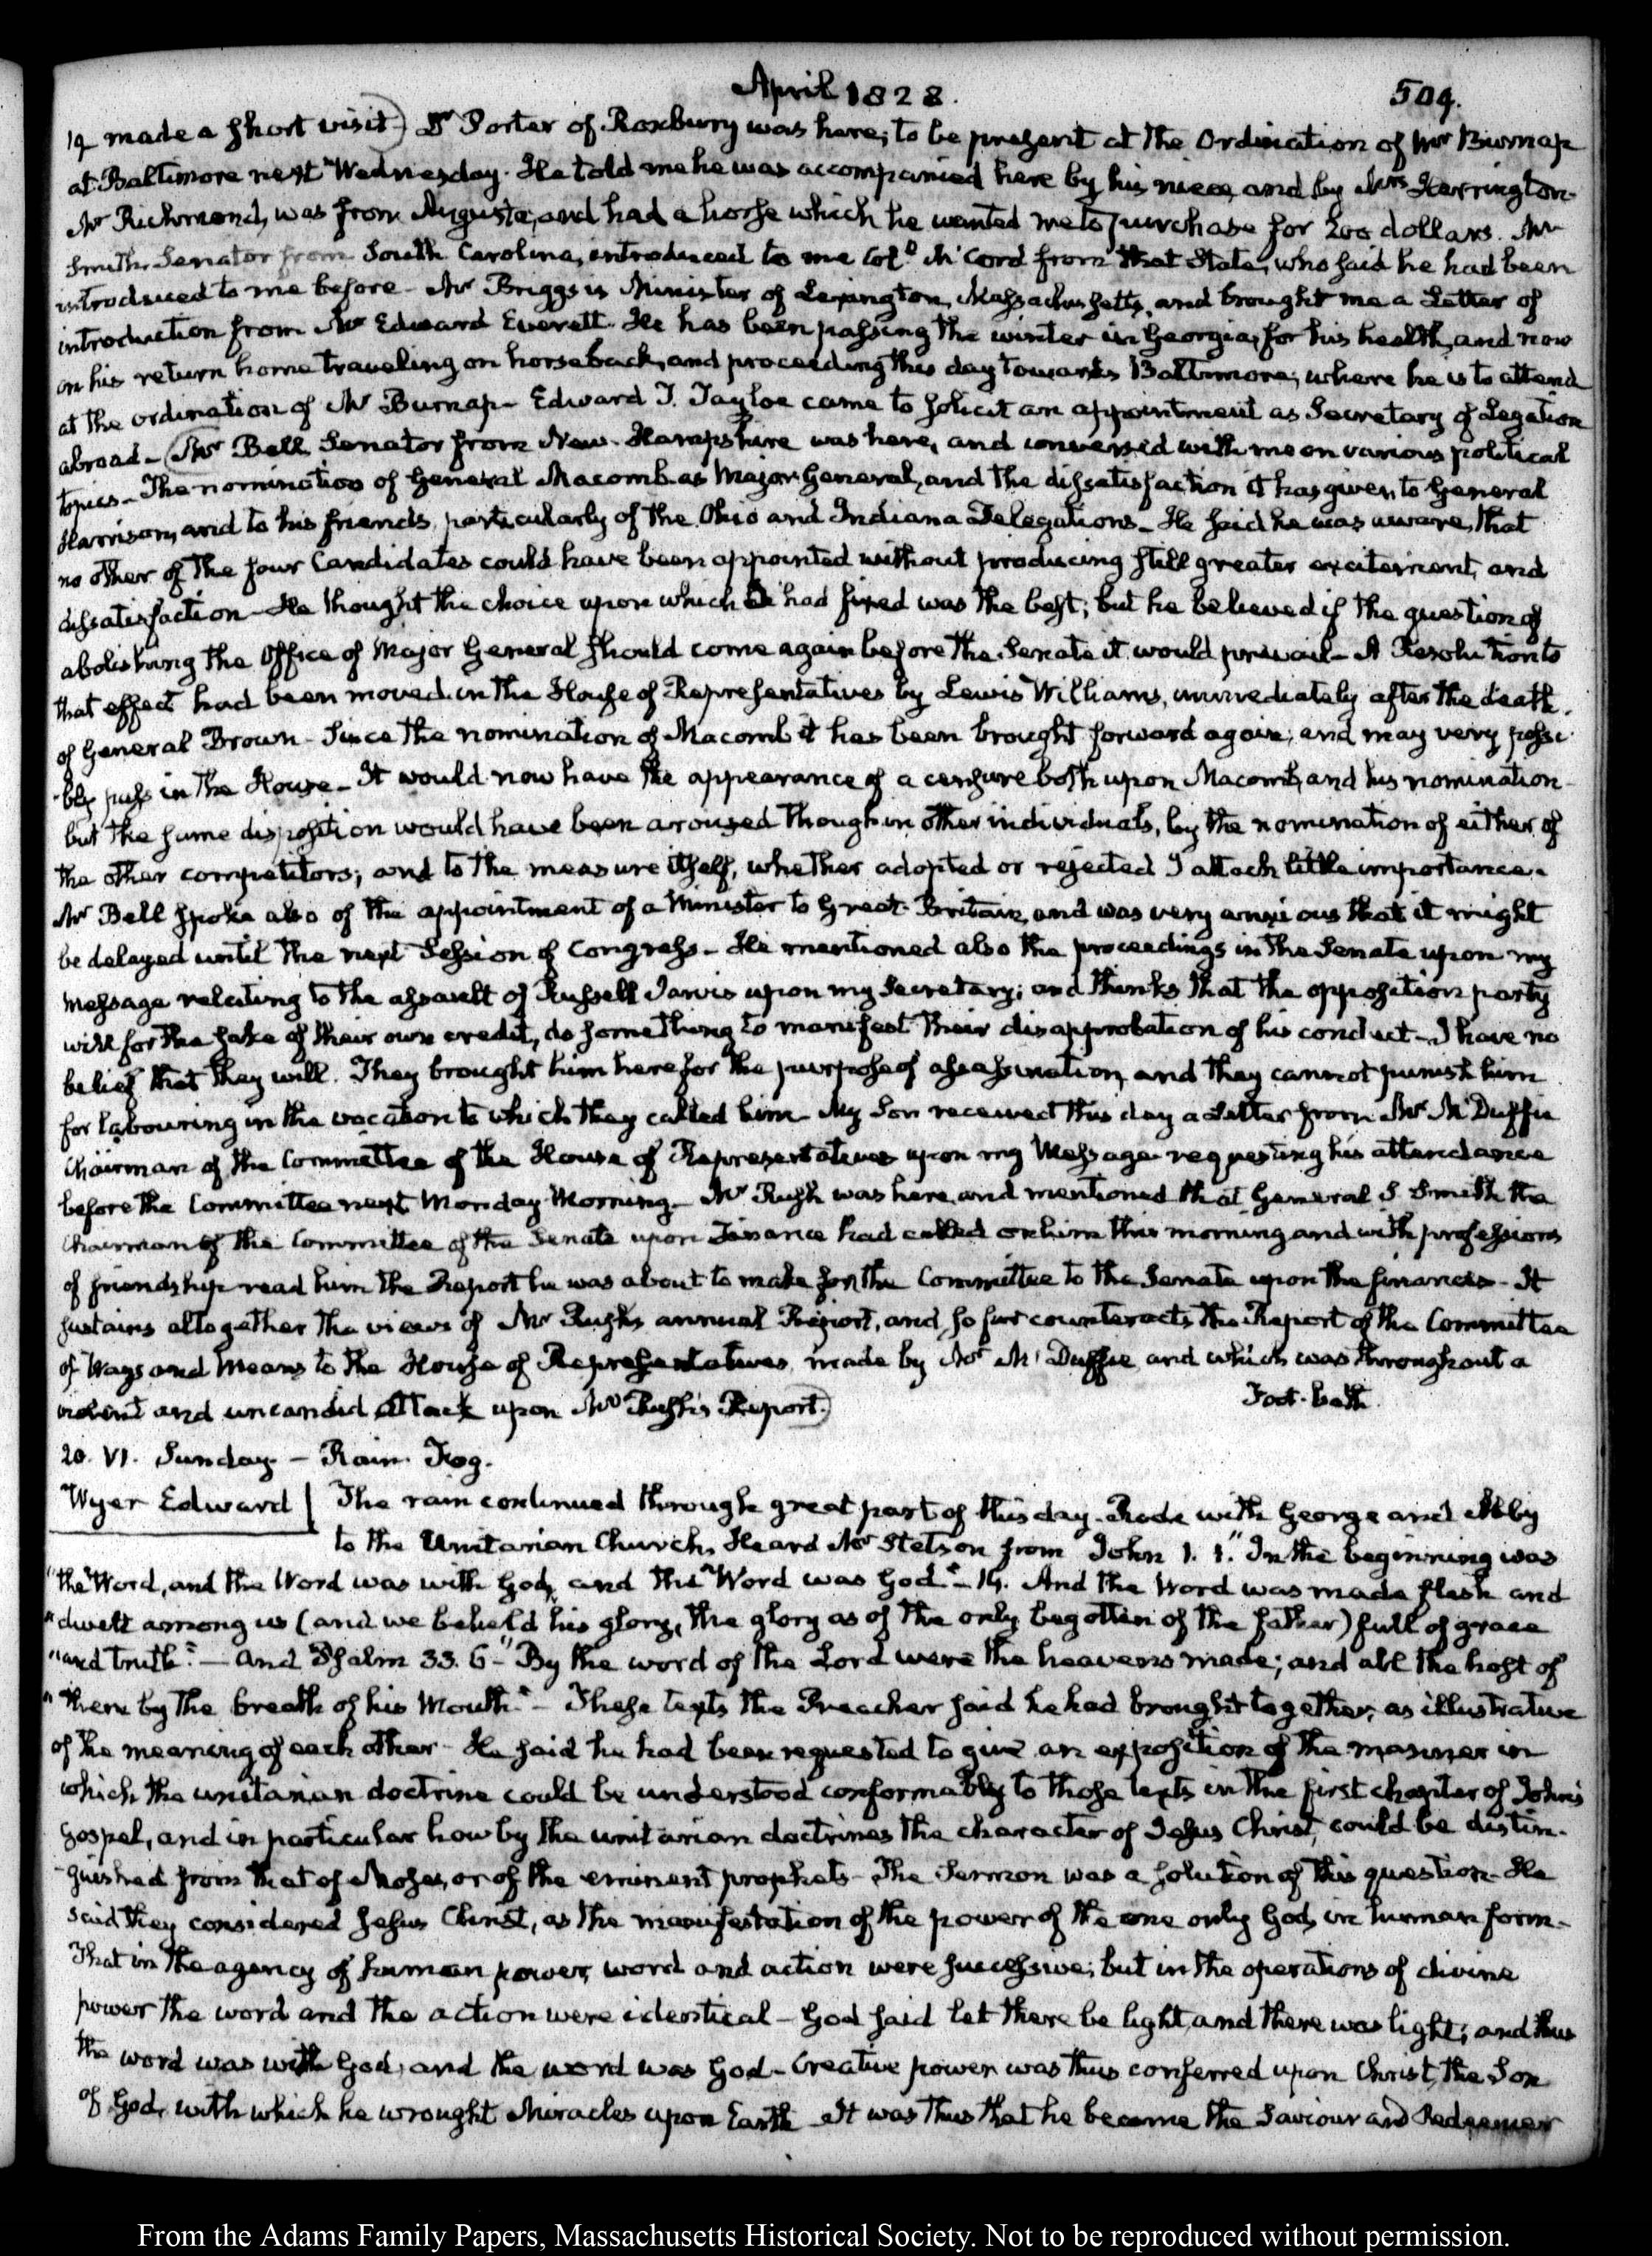 April 1828.
509.
19 made a short visit) Dr Porter of Roxbury was here, to be present at the Ordination of Mr Burnap
at Baltimore next Wednesday. He told me he was accompanied here by his niece, and by Mrs Harrington.
Mr Richmond, was from Augusta, and had a horse which he wanted me to purchase for 200 dollars. Mr
Smith, Senator from South Carolina, introduced to me Coll. McCord from that State, who said he had been
introduced to me before. Mr Briggs is Minister of Lexington, Massachusetts, and brought me a Letter of
introduction from Mr Edward Everett. He has been passing the winter in Georgia, for his health, and now
on his return home traveling on horseback, and proceeding this day towards Baltimore, where he is to attend
at the ordination of Mr Burnap. Edward T. Tayloe came to solicit an appointment as Secretary of Legation
abroad. (Mr Bell, Senator from New-Hampshire was here, and conversed with me on various political
topics. The nomination of General Macomb as Major General, and the dissatisfaction it has given to General
Harrison, and to his friends, particularly of the Ohio and Indiana Delegations. He said he was aware, that
no other of the four Candidates could have been appointed without producing still greater excitement, and
dissatisfaction. He thought the choice upon which I had fixed was the best; but he believed if the question of
abolishing the Office of Major General should come again before the Senate it would prevail. A Resolution to
that effect had been moved in the House of Representatives by Lewis Williams, immediately after the death
of General Brown. Since the nomination of Macomb it has been brought forward again, and may very possi-
bly pass in the House. It would now have the appearance of a censure both upon Macomb, and his nomination.
but the same disposition would have been aroused though in other individuals, by the nomination of either of
the other competitors; and to the measure itself, whether adopted or rejected I attach little importance.
Mr Bell spoke also of the appointment of a Minister to Great-Britain, and was very anxious that it might
be delayed until the next Session of Congress. He mentioned also the proceedings in the Senate upon my
Message relating to the assault of Russell Jarvis upon my Secretary; and thinks that the opposition party
will for the sake of their own credit, do something to manifest their disapprobation of his conduct. I have no
belief that they will. They brought him here for the purpose of assassination, and they cannot punish him
for labouring in the vocation to which they called him. My Son received this day a Letter from Mr McDuffie
Chairman of the Committee of the House of Representatives upon my Message requesting his attendance
before the Committee next Monday Morning. Mr Rush was here, and mentioned that General S. Smith the
Chairman of the Committee of the Senate upon Finance had called on him this morning and with professions
of friendship read him the Report he was about to make for the Committee to the Senate upon the finances. It
sustains altogether the views of Mr Rush's annual Report, and so far counteracts the Report of the Committee
of Ways and Means to the House of Representatives, made by Mr McDuffie and which was throughout a
violent and uncandid attack upon Mr Rush's Report.)
Foot-bath.
20. VI. Sunday — Rain. Fog.
Wyer Edward
The rain continued through great part of this day. Rode with George and Abby
to the Unitarian Church. Heard Mr Stetson from John 1. 1. "In the beginning was
"the Word, and the Word was with God, and the Word was God." 14. And the Word was made flesh and
"dwelt among us (and we beheld his glory, the glory as of the only begotten of the father) full of grace
"and truth." — and Psalm 33. 6 "By the word of the Lord were the heavens made; and all the host of
"them by the breath of his Mouth." These texts the Preacher said he had brought together, as illustrative
of the meaning of each other. He said he had been requested to give an exposition of the manner in
which the unitarian doctrine could be understood conformably to those texts in the first chapter of John's
Gospel, and in particular how by the unitarian doctrines the character of Jesus Christ, could be distin-
guished from that of Moses, or of the eminent prophets. The Sermon was a solution of this question. He
said they considered Jesus Christ, as the manifestation of the power of the one only God, in human form.
That in the agency of human power, word and action were successive; but in the operations of divine
power the word and the action were identical. God said let there be light, and there was light; and thus
the word was with God, and the word was God. Creative power was thus conferred upon Christ, the Son
of God, with which he wrought Miracles upon Earth. It was thus that he became the Saviour and Redeemer
From the Adams Family Papers, Massachusetts Historical Society. Not to be reproduced without permission.